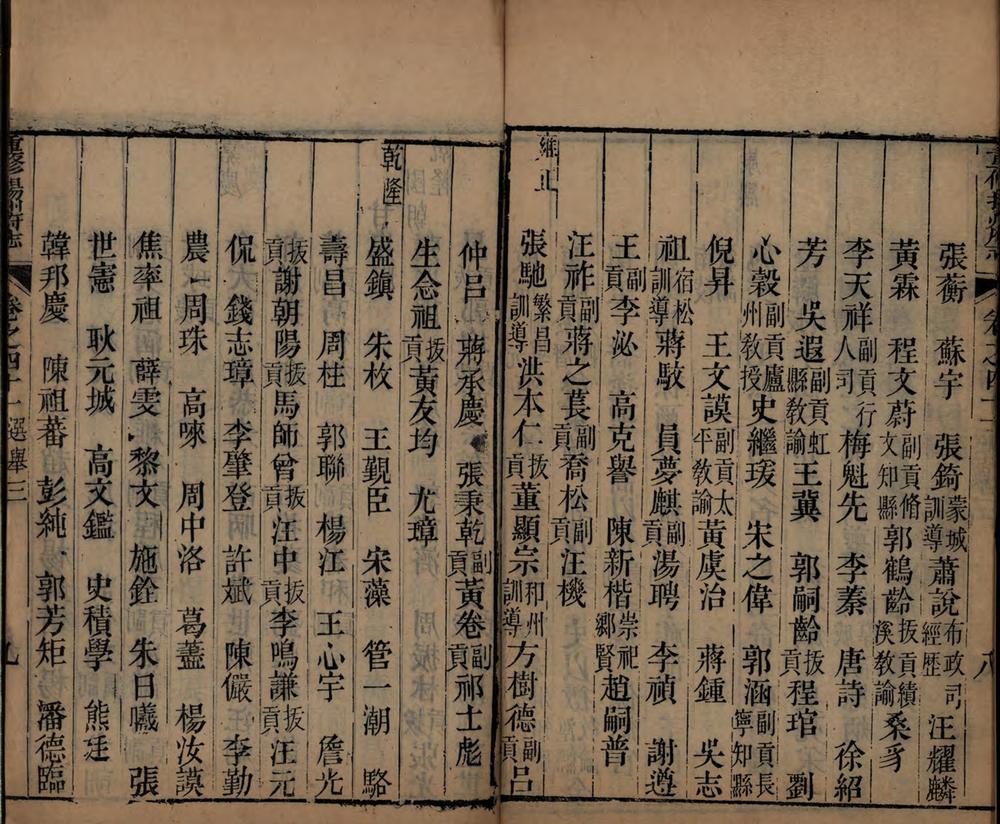 張蘅　蘇宇　張錡蒙城訓導蕭說布政司經歷汪耀麟
黃霖　程文蔚副貢脩文知縣郭鶴齡拔貢績溪教諭桑豸
李天祥副貢行人司梅魁先　李蓁　唐詩　徐紹
芳　吳遐副貢虹縣教諭王冀　郭嗣齡拔貢程琯　劉
心穀副貢廬州教授史繼瑗　朱之偉　郭涵副貢長寧知縣
倪昇　王文謨副貢太平教諭黃虞治　蔣鍾　吳志
祖宿松訓導蔣駮　員夢麒副貢湯聘　李禎　謝遵
王副貢李泌　高克譽　陳新楷崇祀鄉賢趙嗣普
汪祚副貢蔣之萇副貢喬松副貢汪機
雍正
張馳繁昌訓導洪本仁拔貢董顯宗和州訓導方樹德副貢呂
仲呂　蔣承慶　張秉乾副貢黃卷副貢祁士彪
生念祖拔貢黃友均　尤璋
乾隆
盛鎮　朱枚　王覲臣　宋藻　管一潮　駱
壽昌　周柱　郭聯　楊江　王心宇　詹光
拔貢謝朝陽拔貢馬師曾拔貢汪中拔貢李鳴謙拔貢汪元
侃　錢志璋　李肇登　許斌　陳儼　李勤
農　周珠　高唻　周中洛　葛藎　楊汝謨
焦率祖　薛雯　黎文　施銓　朱日曦　張
世憲　耿元城　高文鑑　史積學　熊廷
韓邦慶　陳祖蕃　彭純　郭芳矩　潘德臨
重修揚州府志　卷之四十一選舉三　九
八